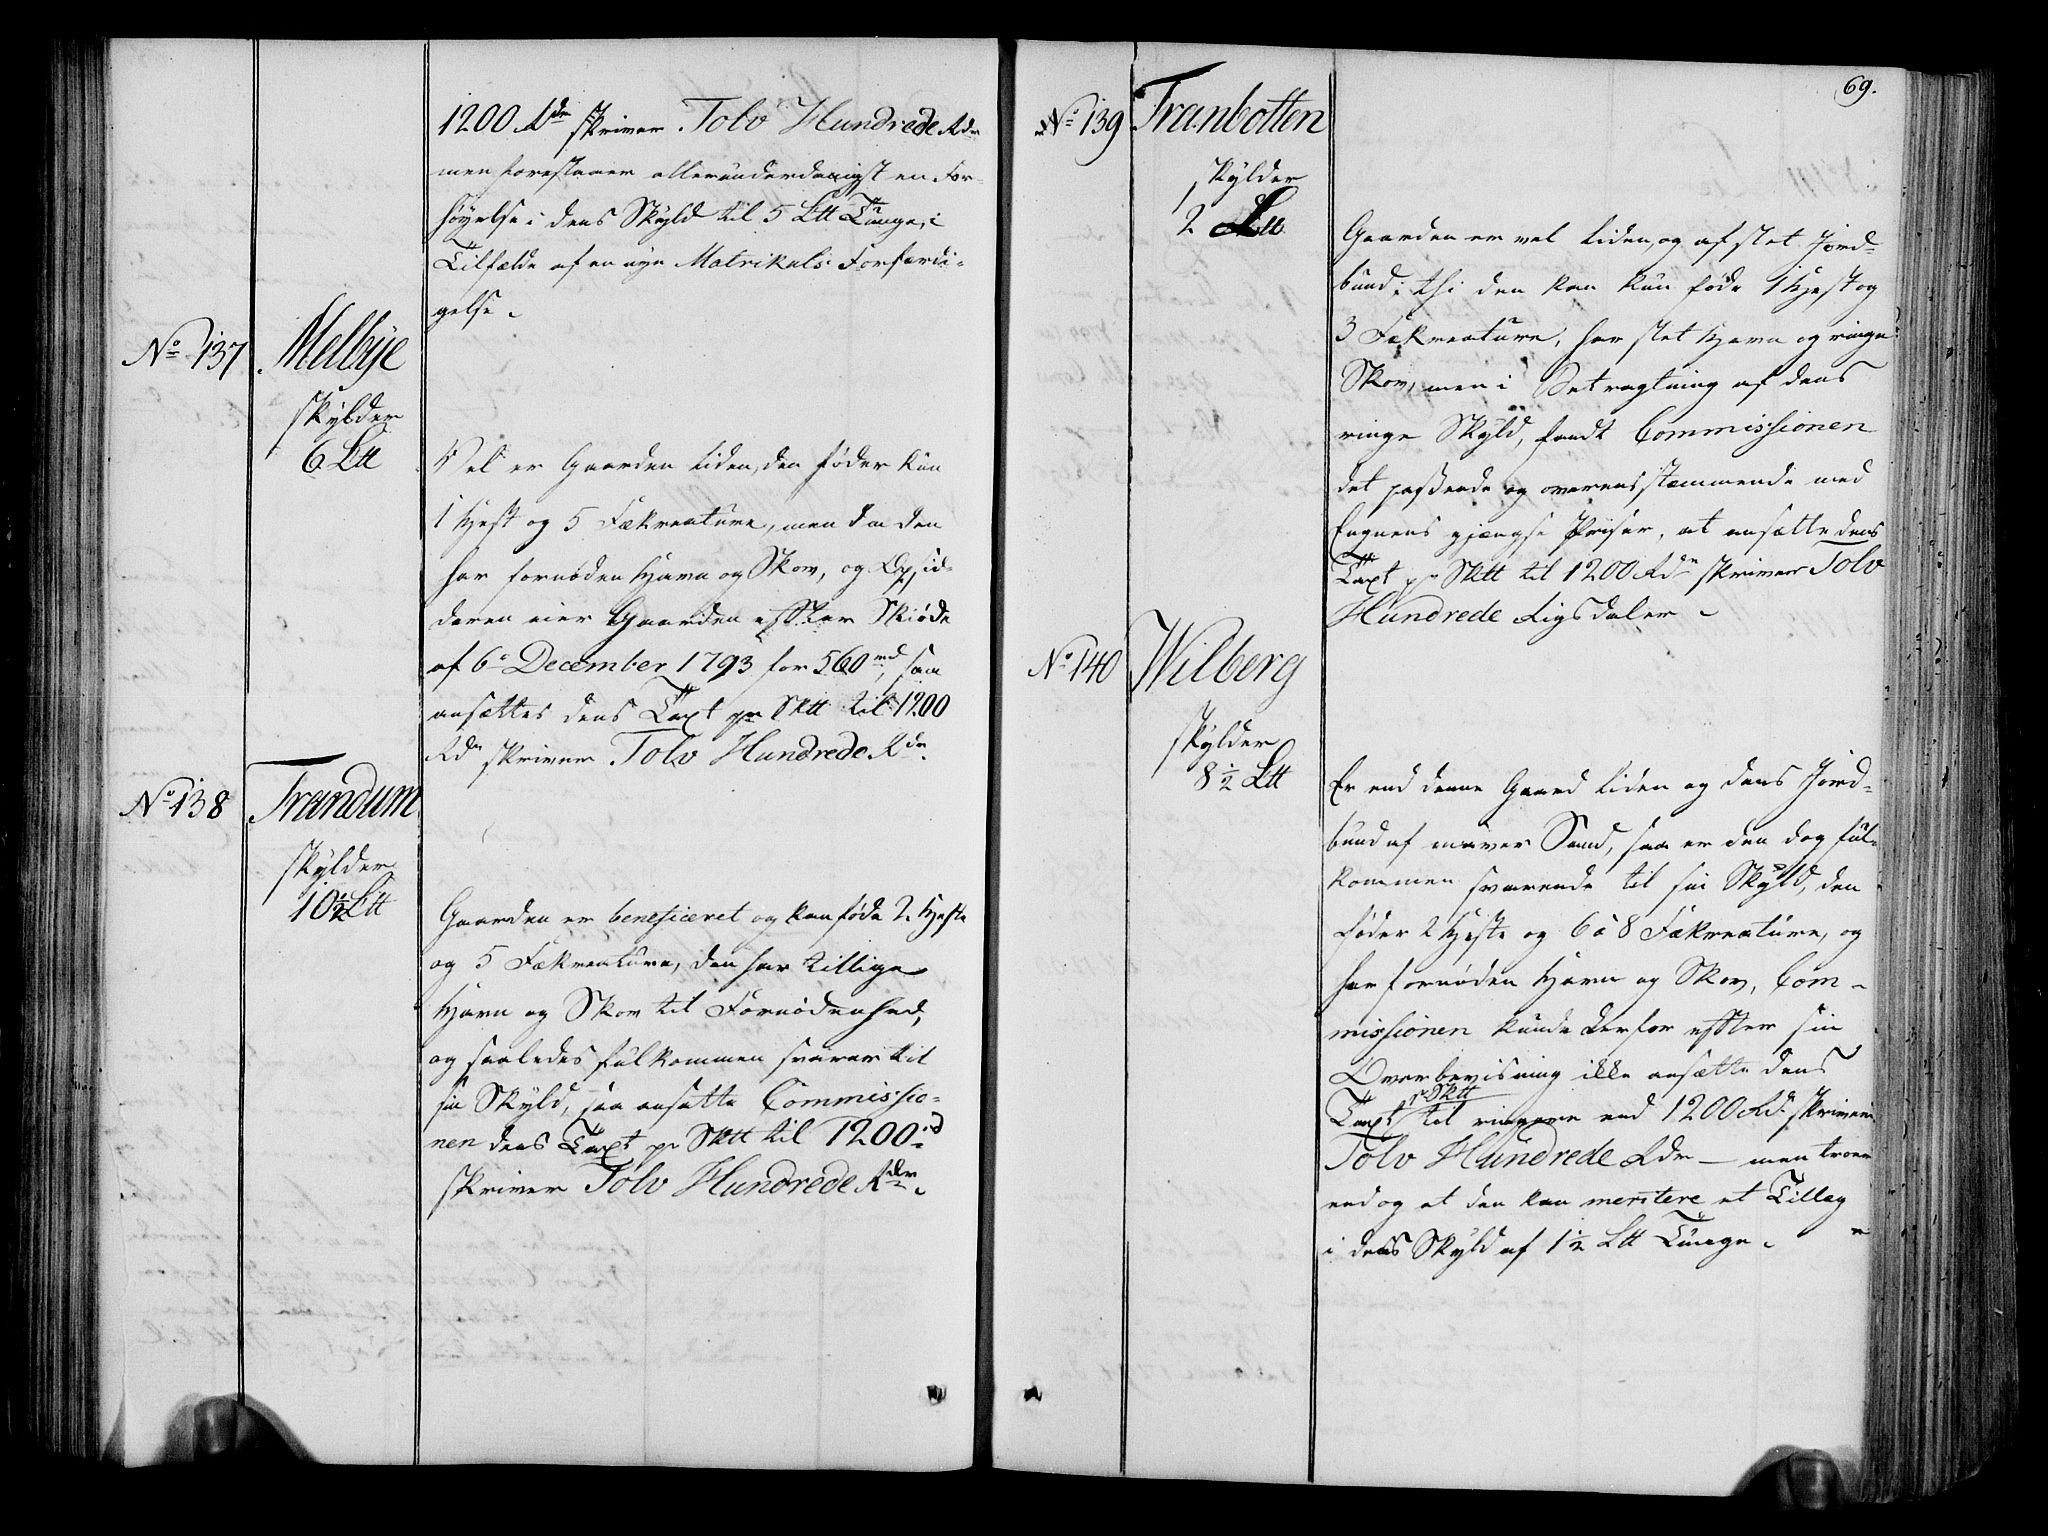 1200 Rdr skriver Tolv Hundrede Rdr
men forestaaer allerunderdanigst en For-
høyelse i dens Skyld til 5 Ltt Tunge, i
Tilfælde af en nye Matrikuls Forfærdi-
gelse.
No 137
Melbye
skylder
6 Ltt
Vel er Gaarden liden, den føder kun
1 Hest og 5 Fækreature, men da den
har fornøden Havn og Skov, og Opsid-
deren eier Gaarden efter Skiøde
af 6e December 1793 for 560 rd, saa
ansættes dens Taxt pr Sktt til 1200
Rdr skriver Tolv Hundrede Rdr.
No 138
Trandum
skylder
10½ Ltt
Gaarden er beneficeret og kan føde 2 Heste
og 5 Fækreature, den har tillige
Havn og Skov til Fornødenhed,
og saaledes fulkommen svarer til
sin Skyld, saa ansatte Commissio-
nen dens Taxt pr Sktt til 1200 rd
skriver Tolv Hundrede Rdr.
69.
No 139
Tranbotten
skylder
2 Ltt
Gaarden er vel liden og af slet Jord-
bund; thi den kan kun føde 1 Hest og
3 Fækreature, har slet Havn og ringe
Skov, men i Betragtning af dens
ringe Skyld, fandt Commissionen
det passende og overensstemmende med
Egnens gjængse Priser, at ansætte dens
Taxt pr Sktt til 1200 Rdr skriver Tolv
Hundrede Rigsdaler
No 140
Wilberg
skylder
8½ Ltt
Er end denne Gaard liden og dens Jord-
bund af maver Sand, saa er den dog ful-
kommen svarende til sin Skyld, den
føder 2 Heste og 6 à 8 Fækreature, og
har fornøden Havn og Skov, Com-
missionen kunde derfor efter sin
Overbeviisning ikke ansætte dens
Taxt pr Sktt til ringere end 1200 Rdr skriver
Tolv Hundrede Rdr — men troer
endog at den kan meritere et Tillæg
i dens Skyld af 1½ Ltt Tunge.